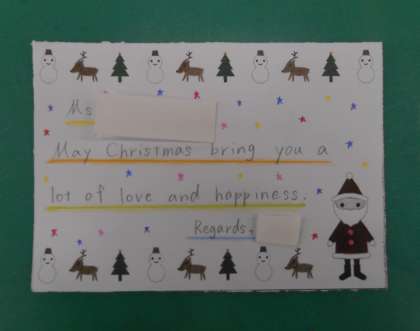 Ms
May Christmas bring you a
lot of love and happiness.
Regards,